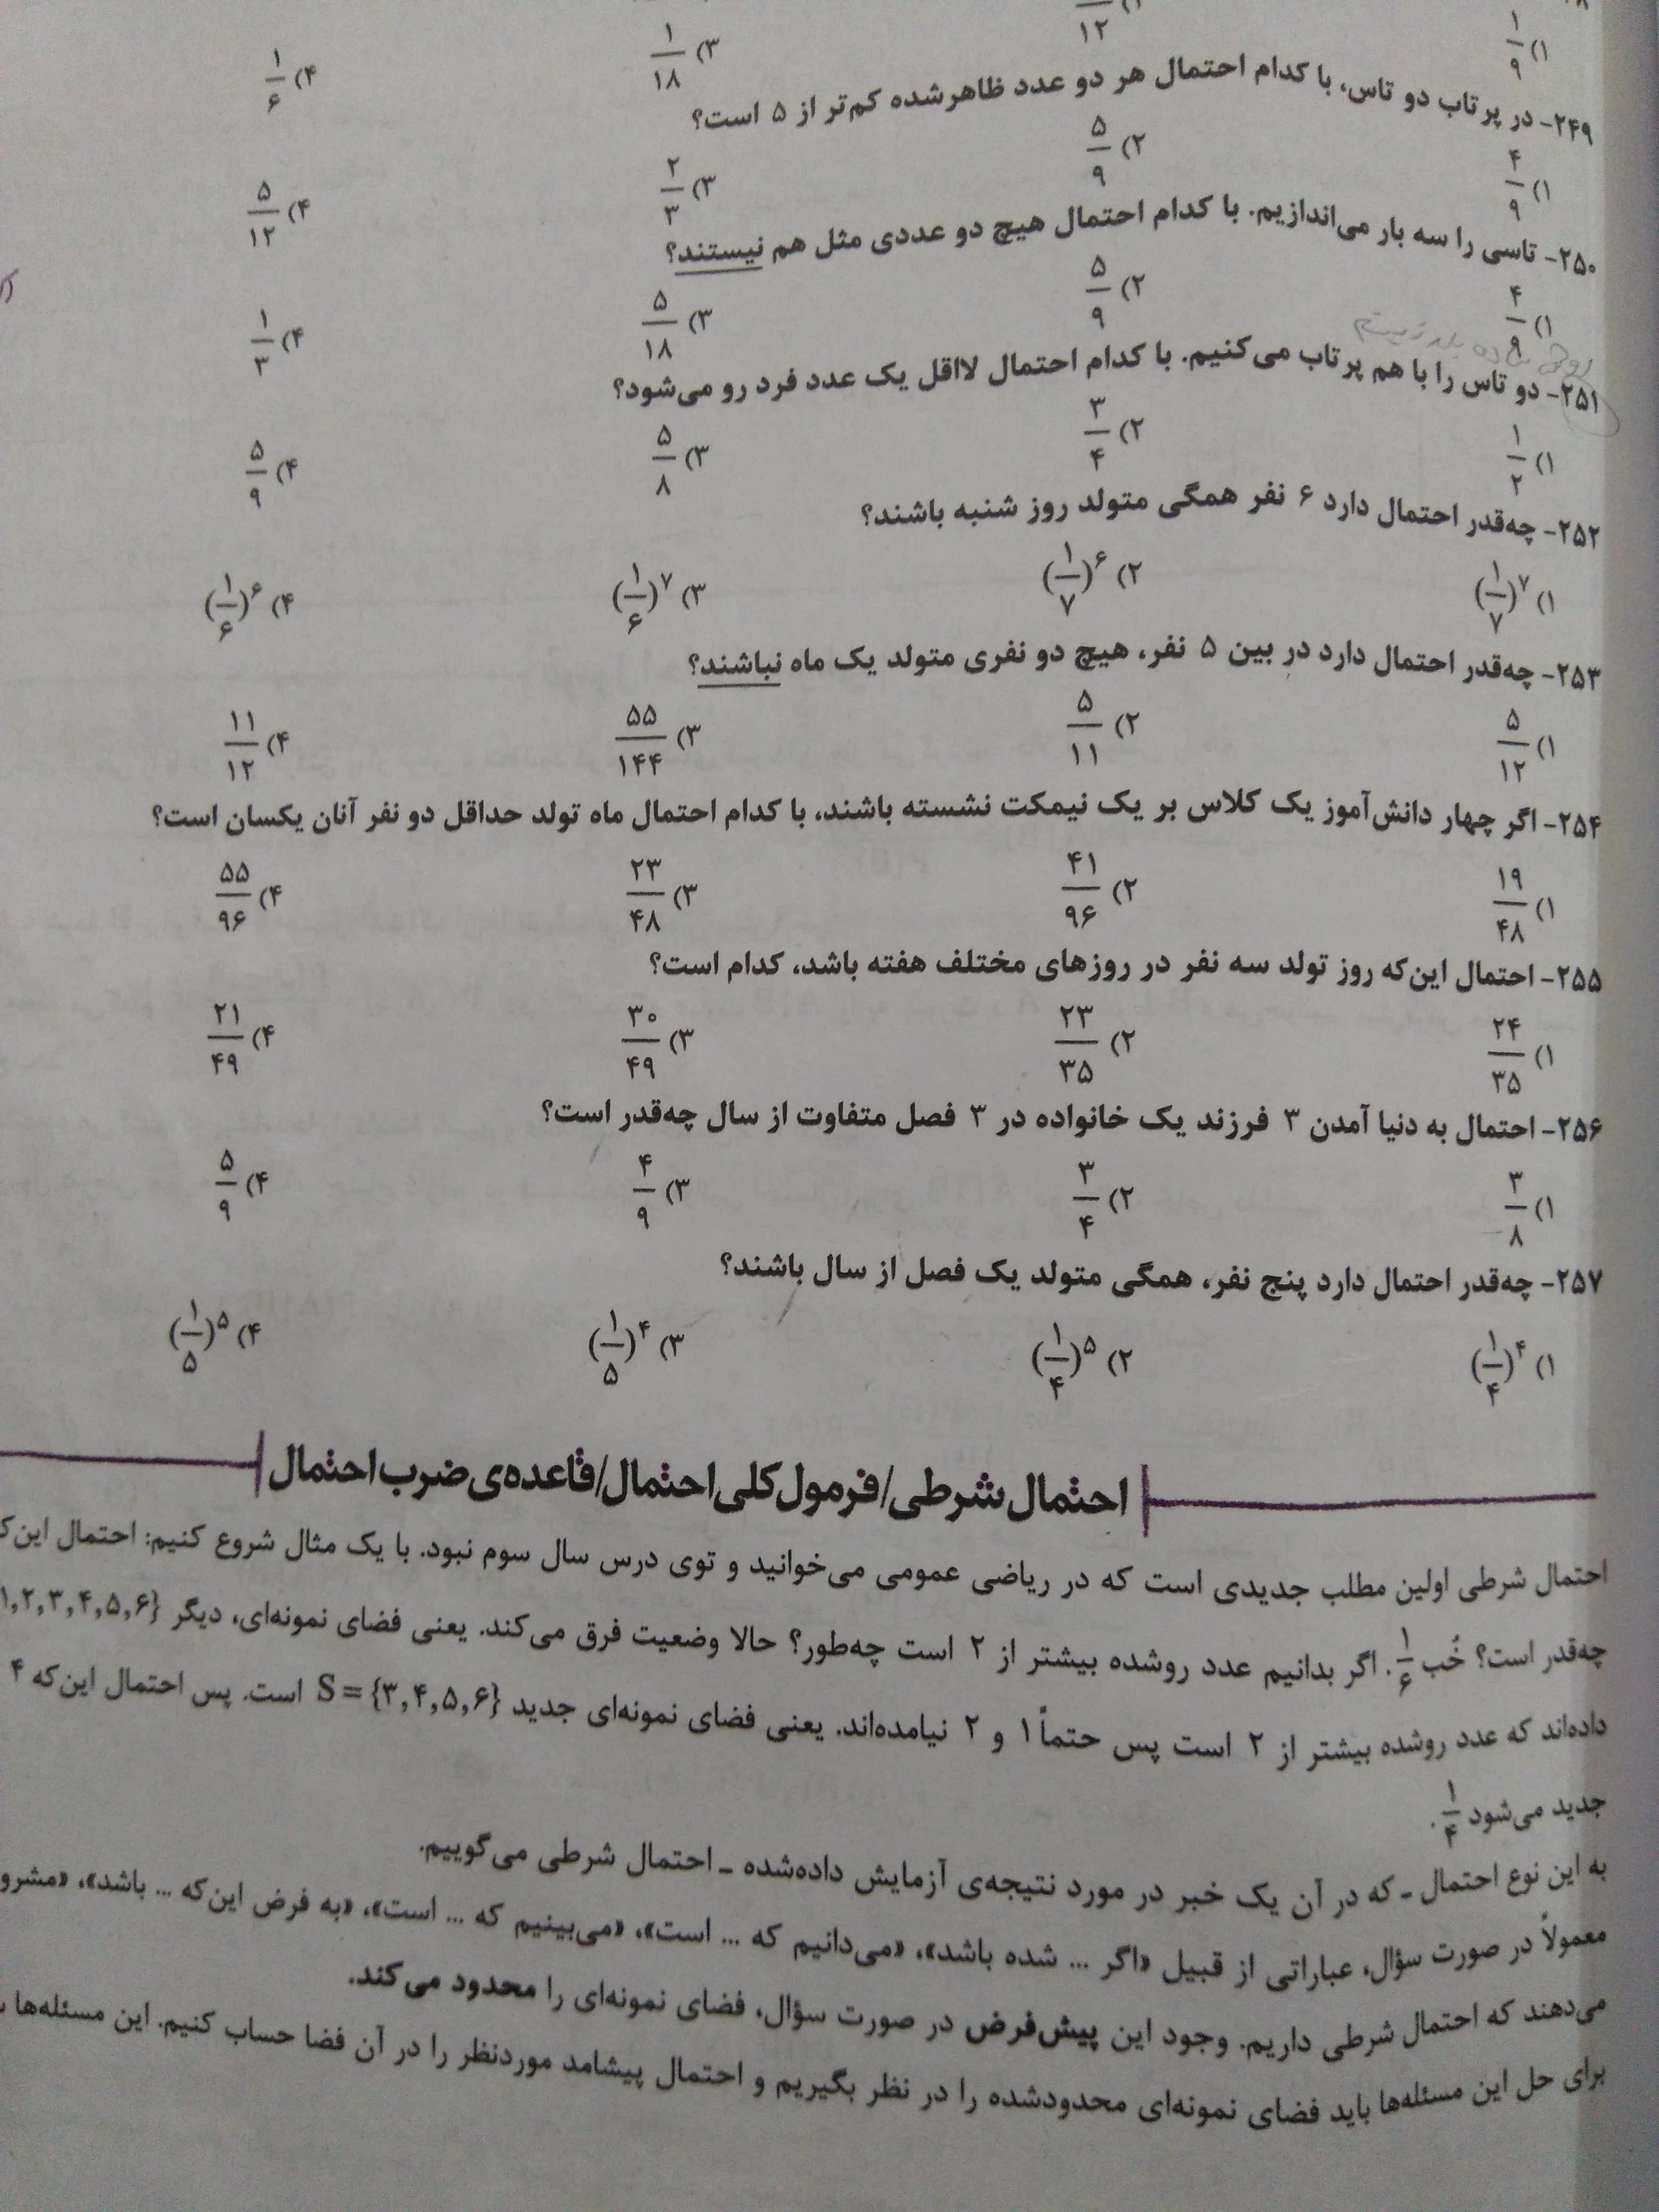 ۱) ۱/۹
۱۲
۳) ۱/۱۸
۴) ۱/۶
۲۴۹- در پرتاب دو تاس، با کدام احتمال هر دو عدد ظاهرشده کم‌تر از ۵ است؟
۱) ۴/۹ ۲) ۵/۹ ۳) ۲/۳ ۴) ۵/۱۲
۲۵۰- تاسی را سه بار می‌اندازیم. با کدام احتمال هیچ دو عددی مثل هم نیستند؟
۱) ۴/۹ ۲) ۵/۹ ۳) ۵/۱۸ ۴) ۱/۳
۲۵۱- دو تاس را با هم پرتاب می‌کنیم. با کدام احتمال لااقل یک عدد فرد رو می‌شود؟
۱) ۱/۲ ۲) ۳/۴ ۳) ۵/۸ ۴) ۵/۹
۲۵۲- چه‌قدر احتمال دارد ۶ نفر همگی متولد روز شنبه باشند؟
۱) (۱/۷)^۷ ۲) (۱/۷)^۶ ۳) (۱/۶)^۷ ۴) (۱/۶)^۶
۲۵۳- چه‌قدر احتمال دارد در بین ۵ نفر، هیچ دو نفری متولد یک ماه نباشند؟
۱) ۵/۱۲ ۲) ۵/۱۱ ۳) ۵۵/۱۴۴ ۴) ۱۱/۱۲
۲۵۴- اگر چهار دانش‌آموز یک کلاس بر یک نیمکت نشسته باشند، با کدام احتمال ماه تولد حداقل دو نفر آنان یکسان است؟
۱) ۱۹/۴۸ ۲) ۴۱/۹۶ ۳) ۲۳/۴۸ ۴) ۵۵/۹۶
۲۵۵- احتمال این‌که روز تولد سه نفر در روزهای مختلف هفته باشد، کدام است؟
۱) ۲۴/۳۵ ۲) ۲۳/۳۵ ۳) ۳۰/۴۹ ۴) ۲۱/۴۹
۲۵۶- احتمال به دنیا آمدن ۳ فرزند یک خانواده در ۳ فصل متفاوت از سال چه‌قدر است؟
۱) ۳/۸ ۲) ۳/۴ ۳) ۴/۹ ۴) ۵/۹
۲۵۷- چه‌قدر احتمال دارد پنج نفر، همگی متولد یک فصل از سال باشند؟
۱) (۱/۴)^۴ ۲) (۱/۴)^۵ ۳) (۱/۵)^۴ ۴) (۱/۵)^۵
احتمال شرطی/فرمول کلی احتمال/قاعده‌ی ضرب احتمال
احتمال شرطی اولین مطلب جدیدی است که در ریاضی عمومی می‌خوانید و توی درس سال سوم نبود. با یک مثال شروع کنیم: احتمال این‌ک
چه‌قدر است؟ خُب ۱/۶. اگر بدانیم عدد روشده بیشتر از ۲ است چه‌طور؟ حالا وضعیت فرق می‌کند. یعنی فضای نمونه‌ای، دیگر {۱,۲,۳,۴,۵,۶}
داده‌اند که عدد روشده بیشتر از ۲ است پس حتماً ۱ و ۲ نیامده‌اند. یعنی فضای نمونه‌ای جدید S = {۳,۴,۵,۶} است. پس احتمال این‌که ۴
جدید می‌شود ۱/۴.
به این نوع احتمال ـ که در آن یک خبر در مورد نتیجه‌ی آزمایش داده‌شده ـ احتمال شرطی می‌گوییم.
معمولاً در صورت سؤال، عباراتی از قبیل «اگر ... شده باشد»، «می‌دانیم که ... است»، «می‌بینیم که ... است»، «به فرض این‌که ... باشد»، «مشرو
می‌دهند که احتمال شرطی داریم. وجود این پیش‌فرض در صورت سؤال، فضای نمونه‌ای را محدود می‌کند.
برای حل این مسئله‌ها باید فضای نمونه‌ای محدودشده را در نظر بگیریم و احتمال پیشامد موردنظر را در آن فضا حساب کنیم. این مسئله‌ها